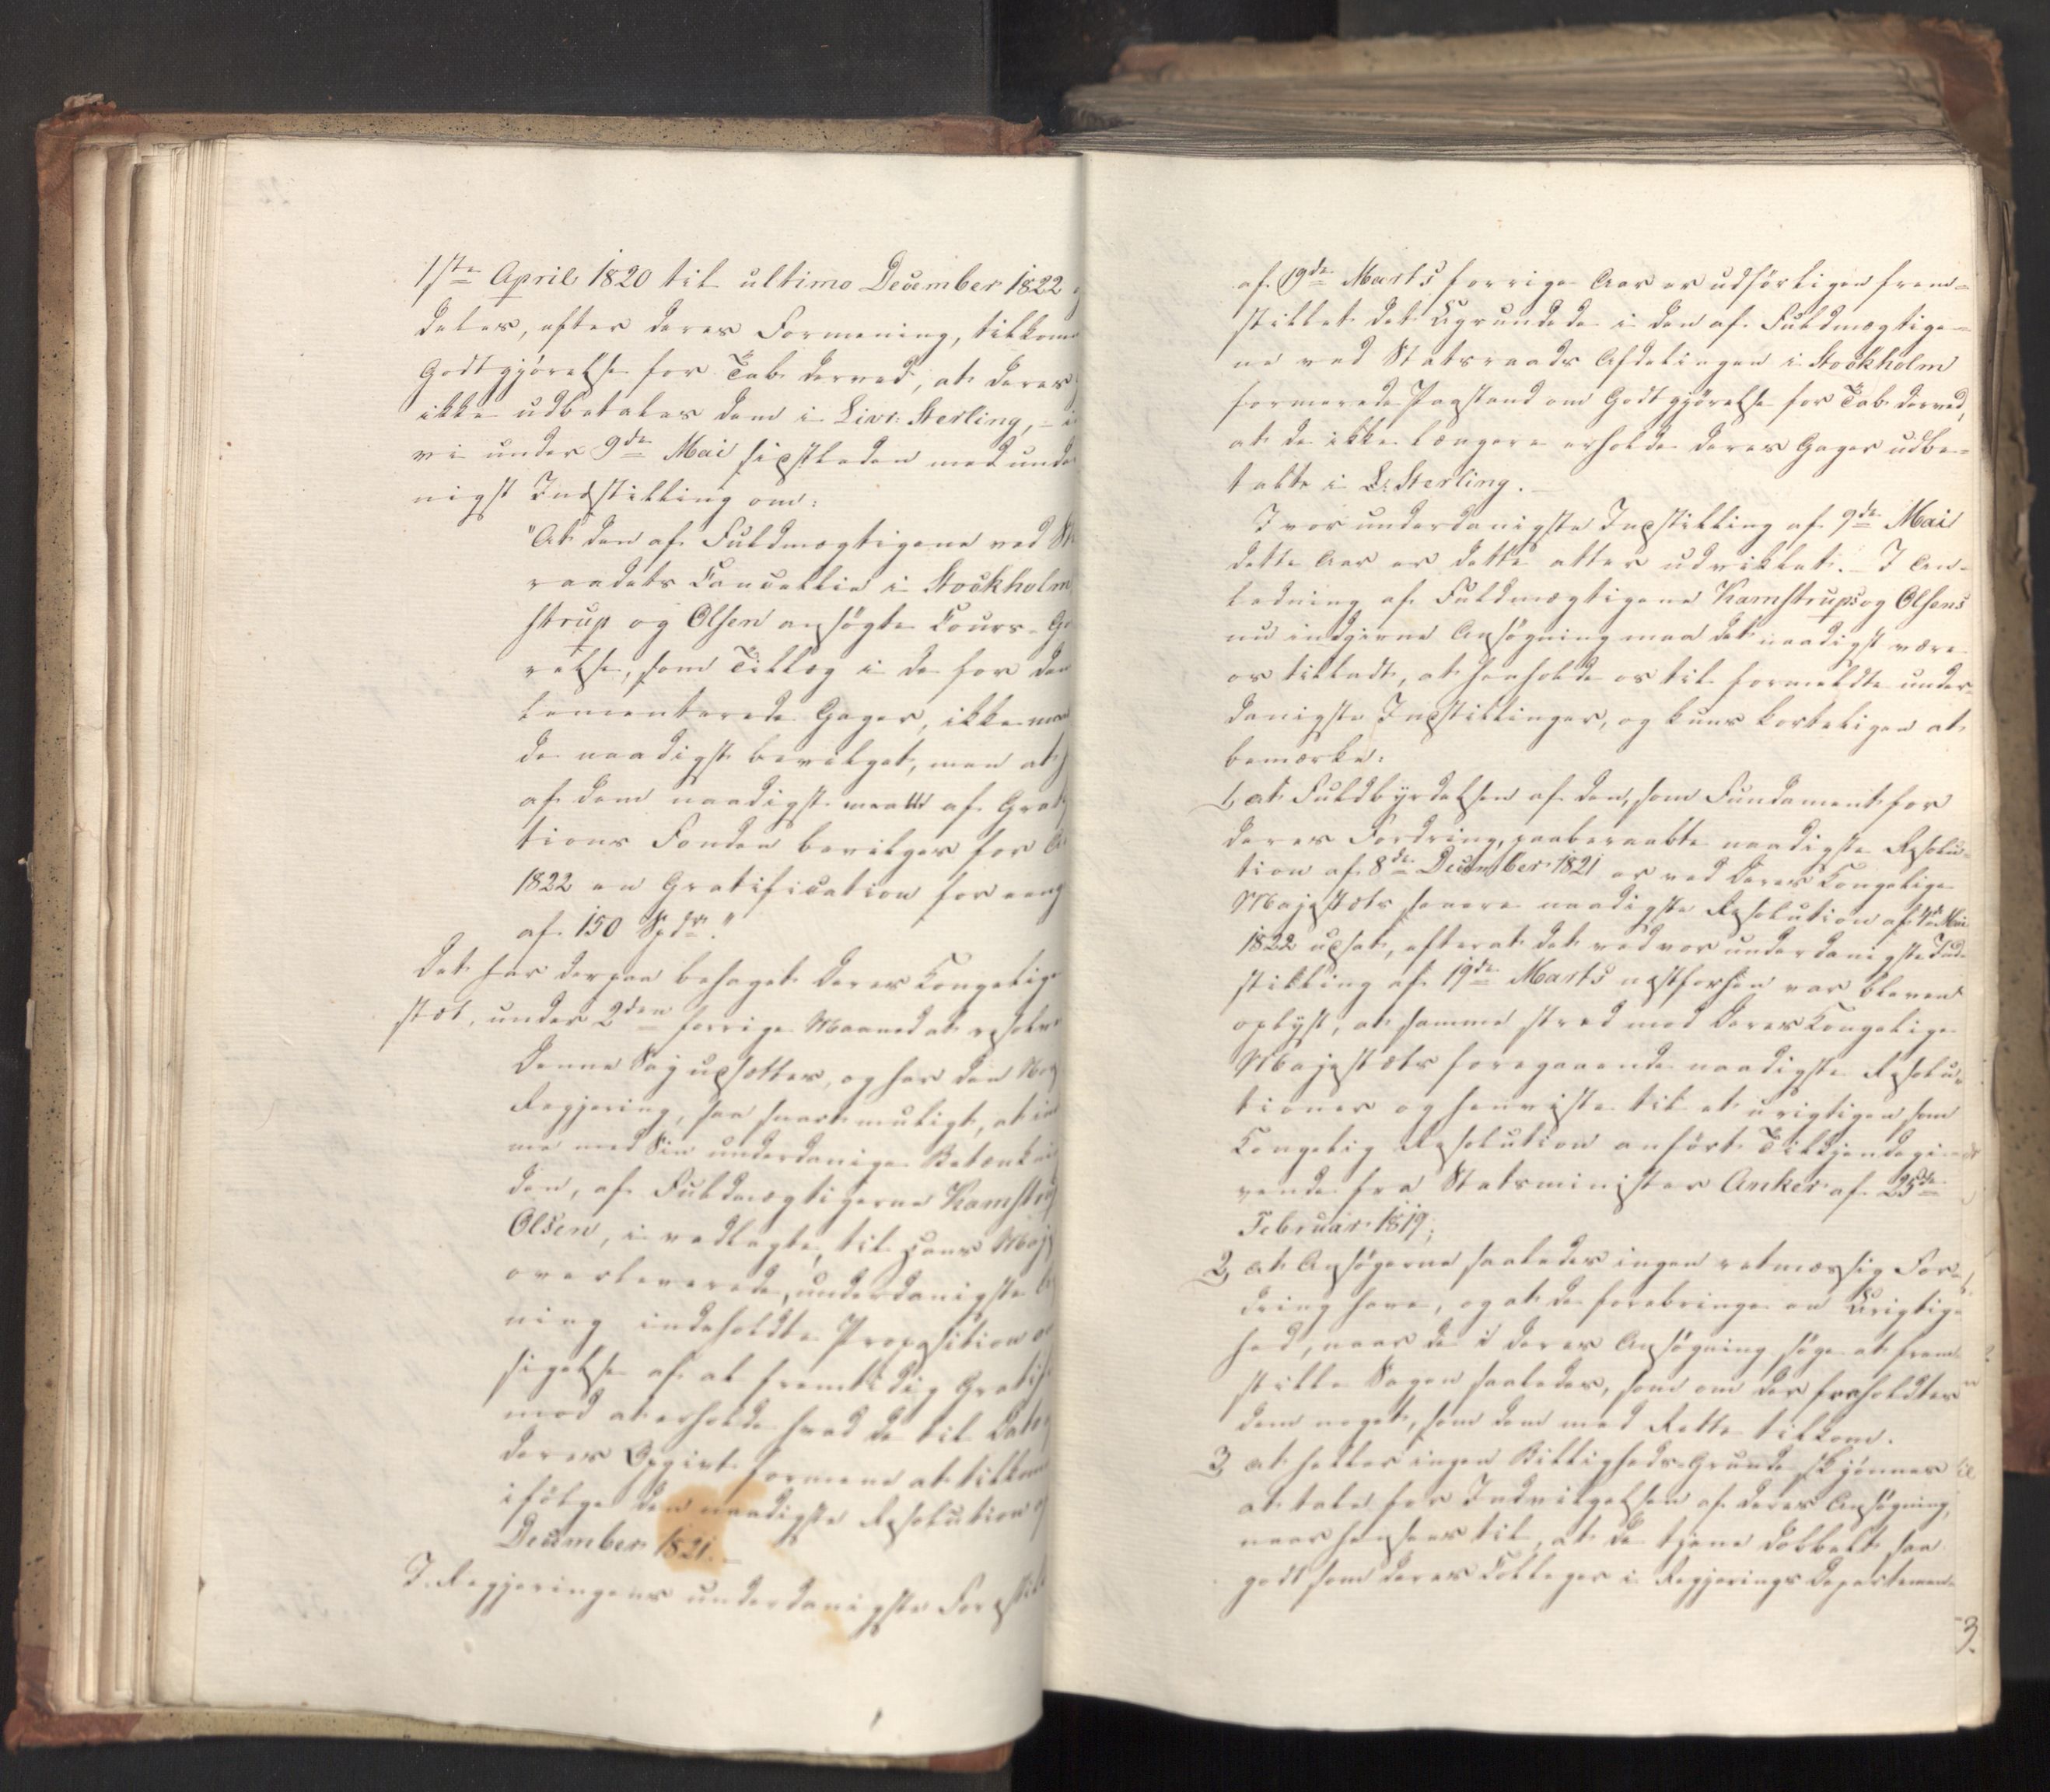 1ste April 1820 til ultimo December 1822
deles, efter deres Formening, tilkom
Godtgjörelse for Tab derved, at deres
ikke udbetales dem i Livr: Sterling, -
vi under 9de Mai sidstleden med unde
nigst Indstilling om:
"At den af Fuldmægtigene ved St
raadets Cancellie i Stockholm
strup og Olsen ansögte Cours-Go
relse, som Tillæg i de for dem
lementerede Gager, ikke maa
de naadigst bevilget, men at
af dem naadigst maatte af Grati
tions Fonden bevilges for A
1822 en Gratification for eeng
af 150 Spdr."
Det har derpaa behaget Deres Kongelige
stæt, under 2den forrige Maaned at resolve
Denne Sag udsættes, og har den Nor
Regjering, saa snart muligt, at in
me med Sin underdanige Betænkni
den, af Fuldmægtigerne Kamstru
Olsen, i vedlagte, til Hans Maj
overleverede, underdanigste
ning indeholdte Proposition
sigelse af al fremtidig Gratifi
mod at erholde hvad de til Dato
deres Opgivt formene at tilkom
ifölge den naadigste Resolution af
December 1821.-
I Regjeringens underdanigste Forestill
af 19de Marts forrige Aar er udförligen frem=
stillet det Ugrundede i den af Fuldmægtige=
ne ved Statsraads Afdelingen i Stockholm
formerede Paastand om Godtgjörelse for Tab derved,
at de ikke længere erholde deres Gager udbe=
talte i L. Sterling.-
I vor underdanigste Indstilling af 9de Mai
dette Aar er dette atter udviklet.- I An=
ledning af Fuldmægtigene Kamstrups og Olsens
nu indgivne Ansögning maa det naadigst være
os tilladt, at henholde os til formeldte under=
danigste Indstillinger, og kuns korteligen at
bemærke:
1, at Fuldbyrdelsen af den, som Fundament for
deres Fordring, paaberaabte naadigste Resolu=
tion af 8de December 1821 er ved Deres Kongelige
Majestæts senere naadigste Resolution af 4de Mai
1822 udsat, efterat det ved vor underdanigste Ind=
stilling af 19de Marts næstforhen var bleven
oplyst, at samme stred mod Deres Kongelige
Majestæts foregaaende naadigste Resolu=
tioner og henviste til et urigtigen som
Kongelig Resolution anfört Tilkjendegi=
vende fra Statsminister Anker af 25de
Februar 1819;
2, at Ansögerne saaledes ingen retmæssig For=
dring have, og at de forebringe en Urigtig=
hed, naar de i deres Ansögning söge at frem=
stille Sagen saaledes, som om der forholdtes
dem noget, som dem med Rette tilkom.
3, at heller ingen Billigheds Grunde skjönnes
at tale for Indvilgelsen af deres Ansögning,
naar hensees til, at de tjene dobbelt saa
godt som deres Colleger i Regjerings Departemen=
3.